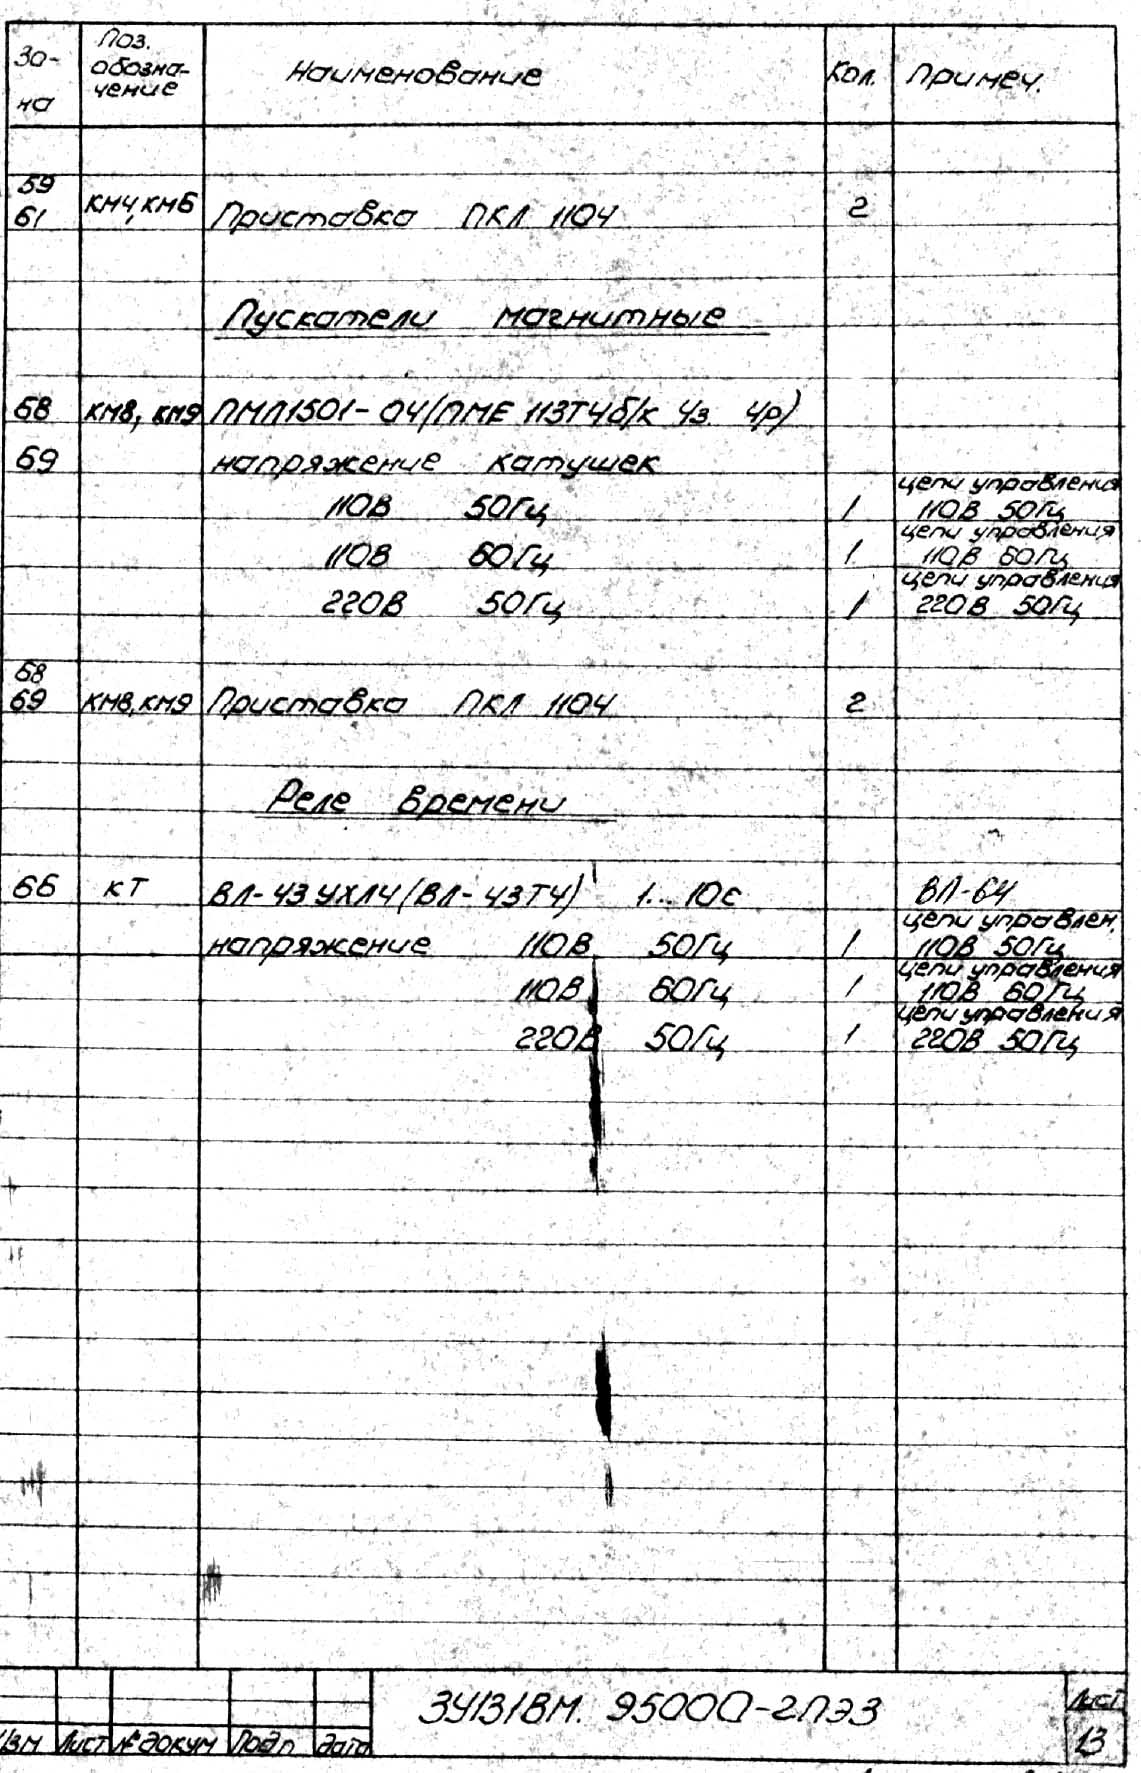 За-
на
Поз.
обозна-
чение
Наименование
Кол.
Примеч.
59
61 КМ4, КМ6 Приставка ПКЛ 1104 2
Пускатели магнитные
68 КМ8, КМ9 ПМЛ1501-04(ПМЕ 113Т4б/к 4з. 4р)
69 напряжение катушек
110В 50Гц 1 цепи управления
110В 50Гц
110В 60Гц 1 цепи управления
110В 60Гц
220В 50Гц 1 цепи управления
220В 50Гц
68
69 КМ8, КМ9 Приставка ПКЛ 1104 2
Реле времени
66 КТ ВЛ-43УХЛ4(ВЛ-43Т4) 1...10с ВЛ-64
напряжение 110В 50Гц 1 цепи управлен.
110В 50Гц
110В 60Гц 1 цепи управления
110В 60Гц
220В 50Гц 1 цепи управления
220В 50Гц
3У131ВМ. 95000-2ПЭ3
Лист
13
Изм Лист № докум Подп дата